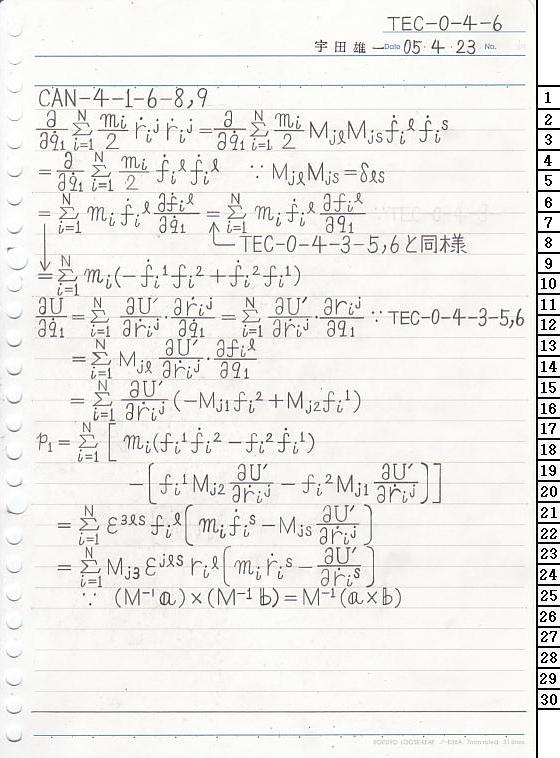 TEC-0-4-6
宇田雄一 Date 05・4・23 No.
CAN-4-1-6-8,9
∂/∂q̇₁ Σ_{i=1}^{N} mᵢ/2 ṙᵢʲ ṙᵢʲ = ∂/∂q̇₁ Σ_{i=1}^{N} mᵢ/2 M_{jℓ}M_{js} ḟᵢ^ℓ ḟᵢ^s
= ∂/∂q̇₁ Σ_{i=1}^{N} mᵢ/2 ḟᵢ^ℓ ḟᵢ^ℓ ∵ M_{jℓ}M_{js}=δ_{ℓs}
= Σ_{i=1}^{N} mᵢ ḟᵢ^ℓ ∂ḟᵢ^ℓ/∂q̇₁ = Σ_{i=1}^{N} mᵢ ḟᵢ^ℓ ∂fᵢ^ℓ/∂q₁
TEC-0-4-3-5,6と同様
= Σ_{i=1}^{N} mᵢ(-ḟᵢ¹fᵢ² + ḟᵢ²fᵢ¹)
∂U/∂q̇₁ = Σ_{i=1}^{N} ∂U′/∂ṙᵢʲ · ∂ṙᵢʲ/∂q̇₁ = Σ_{i=1}^{N} ∂U′/∂ṙᵢʲ · ∂rᵢʲ/∂q₁ ∵ TEC-0-4-3-5,6
= Σ_{i=1}^{N} M_{jℓ} ∂U′/∂ṙᵢʲ · ∂fᵢ^ℓ/∂q₁
= Σ_{i=1}^{N} ∂U′/∂ṙᵢʲ (-M_{j1}fᵢ² + M_{j2}fᵢ¹)
p₁ = Σ_{i=1}^{N} [ mᵢ(fᵢ¹ḟᵢ² - fᵢ²ḟᵢ¹)
-[fᵢ¹M_{j2} ∂U′/∂ṙᵢʲ - fᵢ²M_{j1} ∂U′/∂ṙᵢʲ]]
= Σ_{i=1}^{N} ε^{3ℓs} fᵢ^ℓ [mᵢḟᵢ^s - M_{js} ∂U′/∂ṙᵢʲ]
= Σ_{i=1}^{N} M_{j3} ε^{jℓs} rᵢ^ℓ [mᵢṙᵢ^s - ∂U′/∂ṙᵢ^s]
∵ (M⁻¹𝕒)×(M⁻¹𝕓) = M⁻¹(𝕒×𝕓)
1
2
3
4
5
6
7
8
9
10
11
12
13
14
15
16
17
18
19
20
21
22
23
24
25
26
27
28
29
30